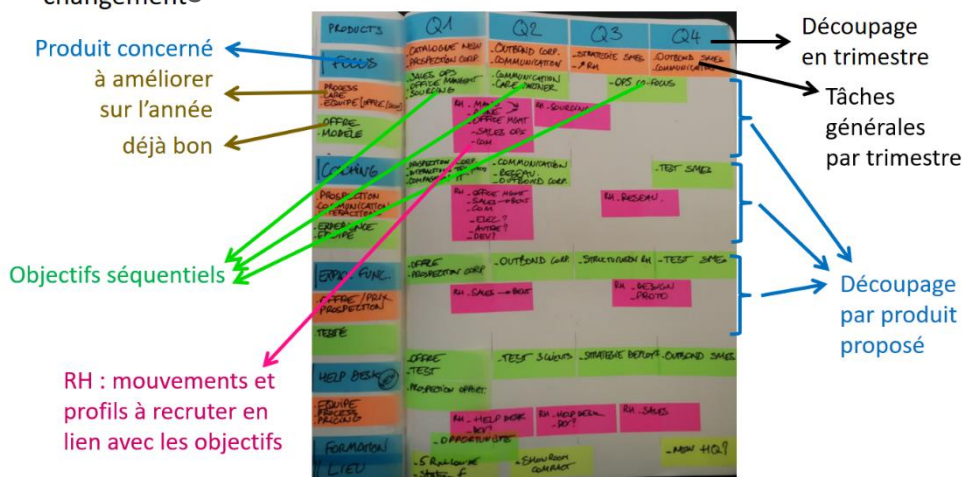 changement
Produit concerné
à améliorer
sur l'année
déjà bon
Objectifs séquentiels
RH : mouvements et
profils à recruter en
lien avec les objectifs
Découpage
en trimestre
Tâches
générales
par trimestre
Découpage
par produit
proposé
PRODUCTS
Q1
Q2
Q3
Q4
- CATALOGUE NEW
- PROSPECTION CORP.
- OUTBOND CORP.
- COMMUNICATION
- STRATEGIE SMES
- OUTBOND SMES
- COMMUNICATION
FOCUS
PROCESS
- SALES OPS
- OFFICE MANAGMT
- SOURCING
- COMMUNICATION
- OPS CO-FOCUS
OFFRE
MODÈLE
RH
- OFFICE MGMT
- SALES OPS
- COM
RH - SOURCING
COACHING
- PROSPECTION
- COMMUNICATION
- INTERACTIONS
- EXPERIENCE
- EQUIPE
- PROSPECTION CORP.
- COMMUNICATION
- RESEAU
- OUTBOND CORP.
- TEST SMES
RH - OFFICE MGMT
- SALES → BENT
- COM
- AUTRE?
- DEV?
RH - RESEAU
- OFFRE / PRIX
PROSPECTION
- OFFRE
- PROSPECTION CORP.
- OUTBOND CORP.
- STRUCTURATION RH
- TEST SMES
RH - SALES → BENT
RH - DESIGN
- PROTO
HELP DESK
- EQUIPE
PROCESS
PRICING
- OFFRE
- TEST
- TEST 3 CLIENTS
- OUTBOND SMES
RH - HELP DESK
- DEV?
RH - HELP DESK
- DEV?
RH - SALES
FORMATION
LIEU
- OPPORTUNITES
- SHOWROOM
COMPACT
- NEW HQ?